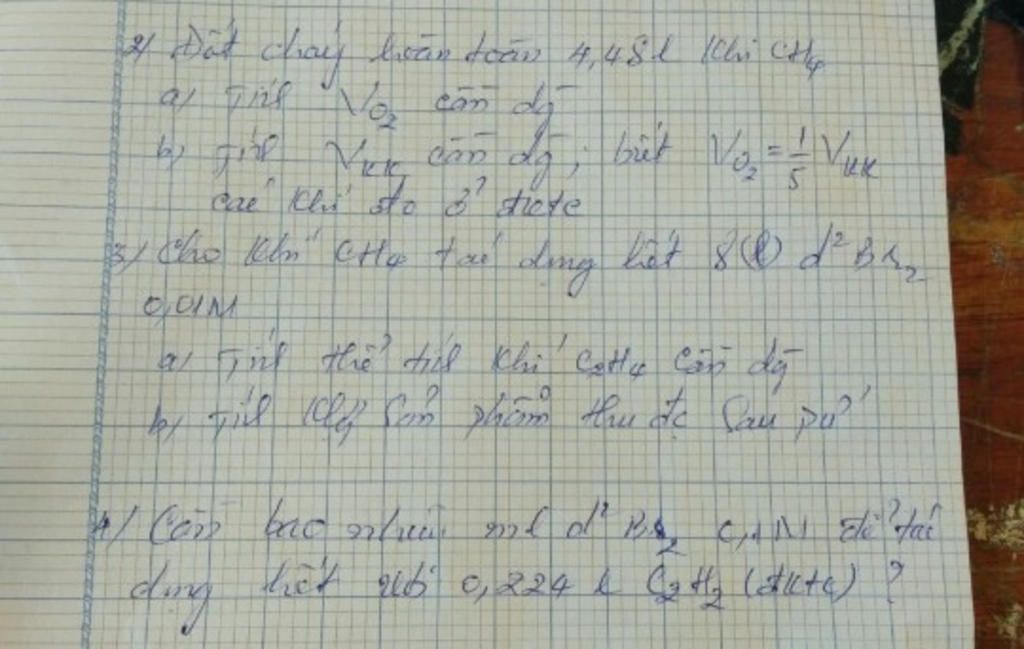 2) Đốt cháy hoàn toàn 4,48l khí CH4
a) Tính VO2 cần dg
b) Tính VKK cần dg; biết VO2 = 1/5 VKK
các khí đo ở đktc
3) Cho khí CH4 tác dụng hết 8(l) d² Br2
0,01M
a) Tính thể tích khí C2H4 cần dg
b) Tính Klg sản phẩm thu đc sau pứ
4) Cần bao nhiêu ml d² Br2 0,1M để tác
dụng hết với 0,224 l C2H2 (đktc) ?